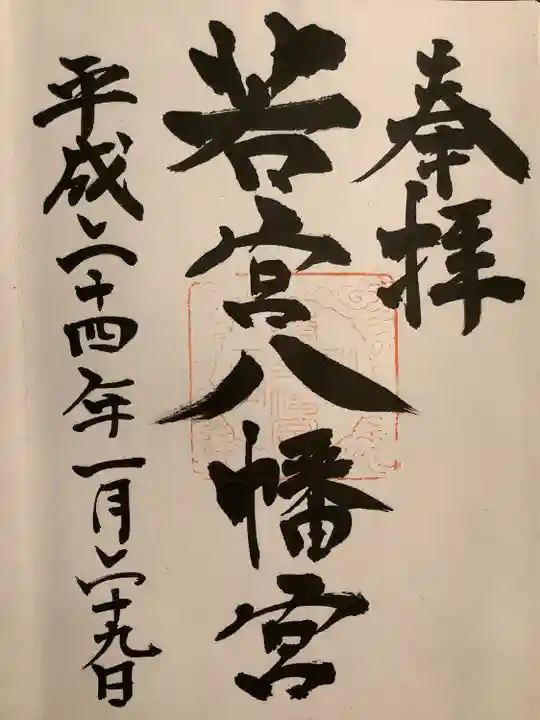 奉拝
若宮八幡宮
平成二十四年一月二十九日